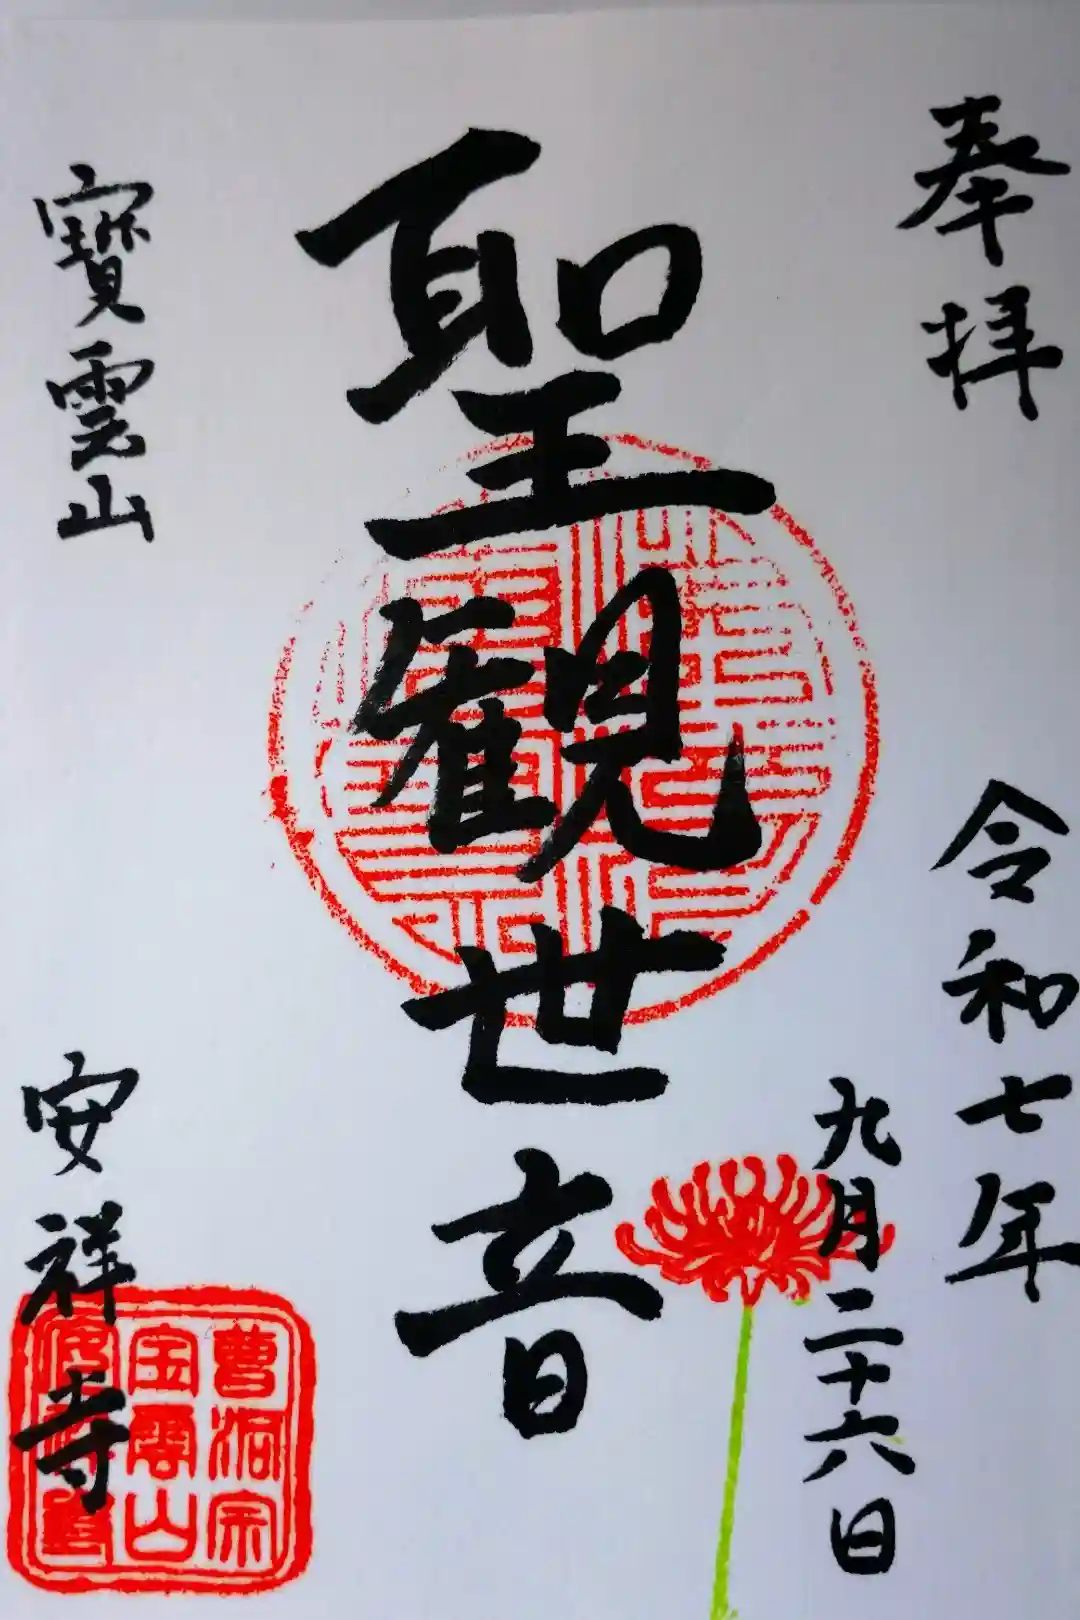 奉拝
令和七年
九月二十六日
聖観世音
寶雲山
安祥寺
曹洞宗
宝雲山